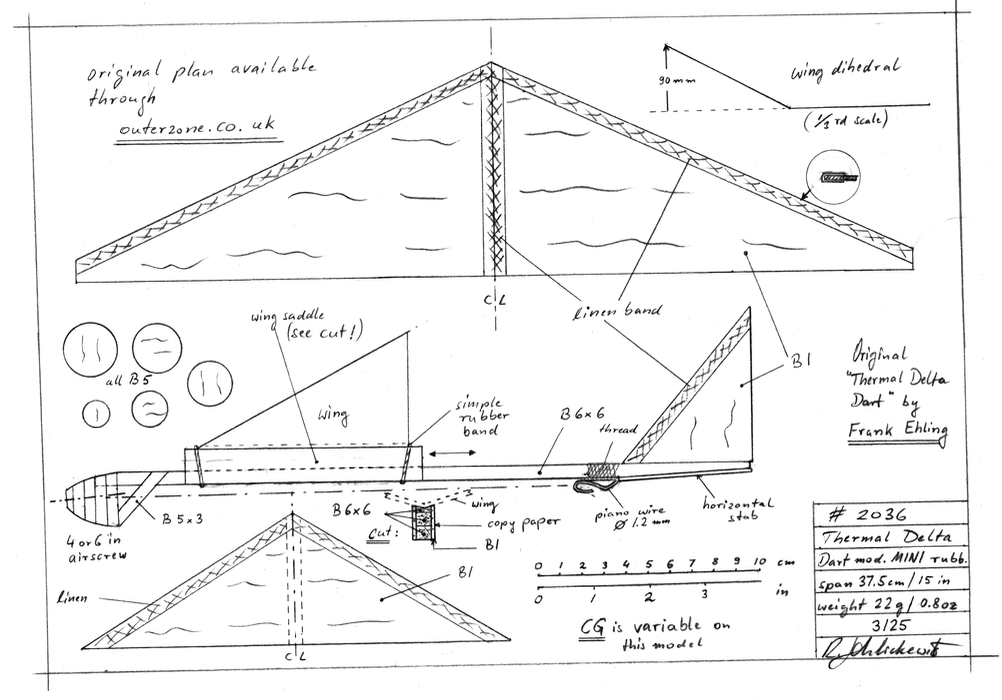 original plan available
through
outerzone.co.uk
90mm
wing dihedral
(⅓ rd scale)
C L
wing saddle
(see cut!)
linen band
all B5
wing
simple
rubber
band
B6x6
thread
B1
Original
"Thermal Delta
Dart" by
Frank Ehling
B5x3
4 or 6 in
airscrew
B6x6
wing
copy paper
Cut:
B1
piano wire
Ø 1.2 mm
horizontal
stab
linen
B1
C L
0 1 2 3 4 5 6 7 8 9 10 cm
0 1 2 3 in
CG is variable on
this model
# 2036
Thermal Delta
Dart mod. MINI rubb.
span 37.5cm/15 in
weight 22g/0.8oz
3/25